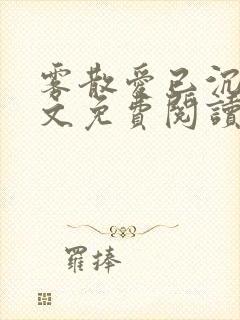 雾散爱已沉
文免費閱讀
羅捧